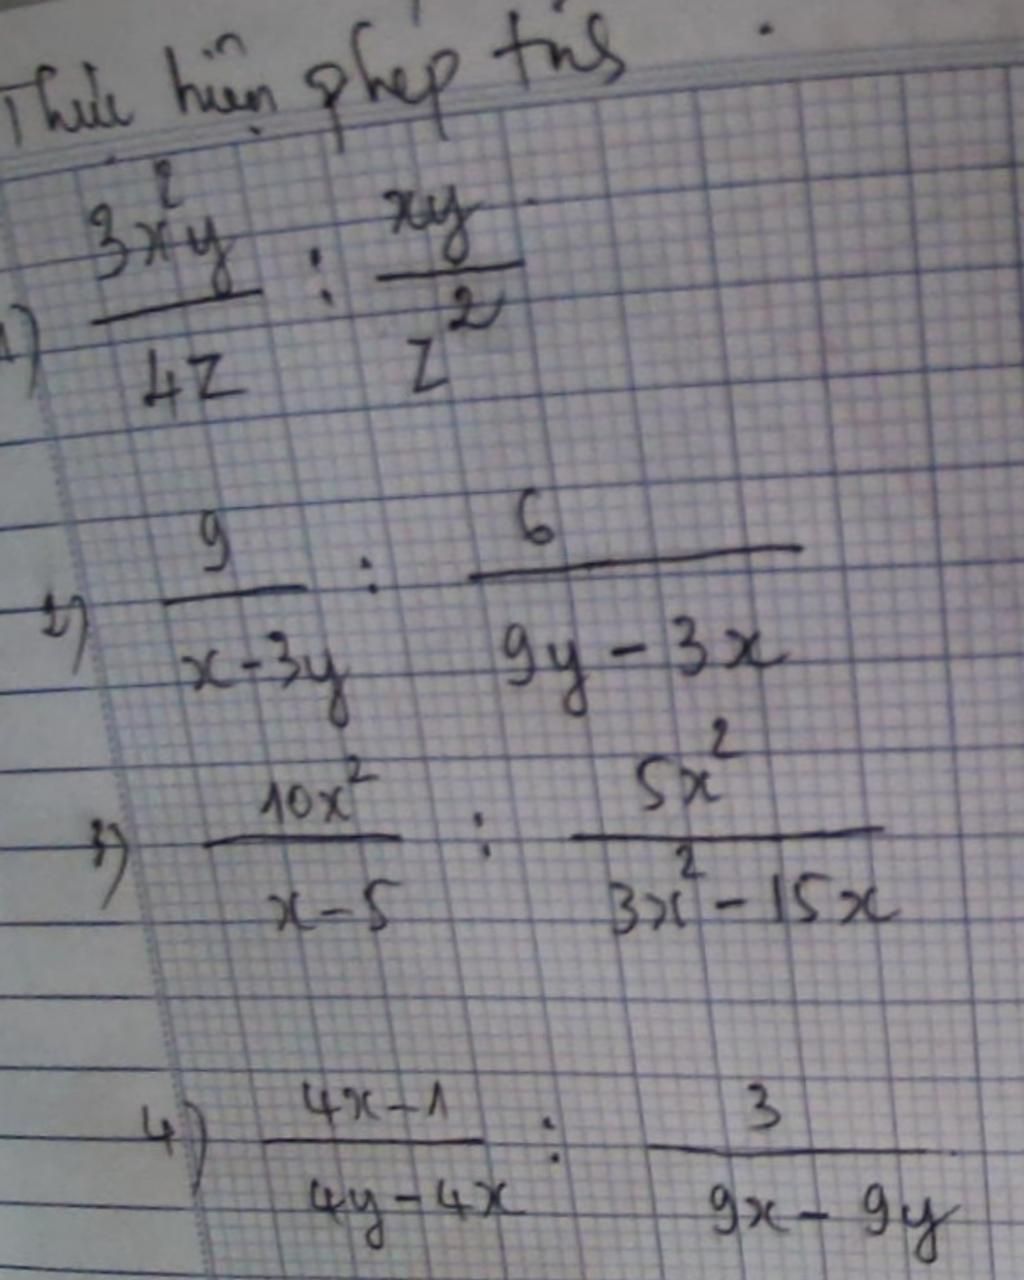 Thực hiện phép tính
1) \frac{3x^2y}{4z} : \frac{xy}{z^2}
2) \frac{9}{x-3y} : \frac{6}{9y-3x}
3) \frac{10x^2}{x-5} : \frac{5x^2}{3x^2-15x}
4) \frac{4x-1}{4y-4x} : \frac{3}{9x-9y}